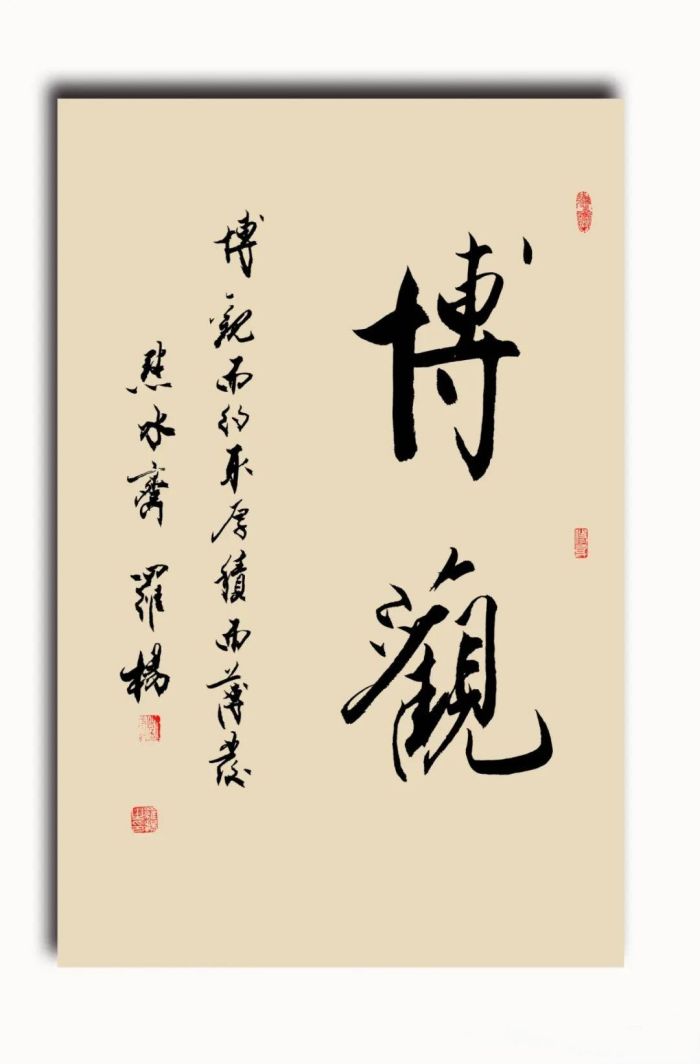 博觀
博觀而約取厚積而薄發
水齋 羅楊